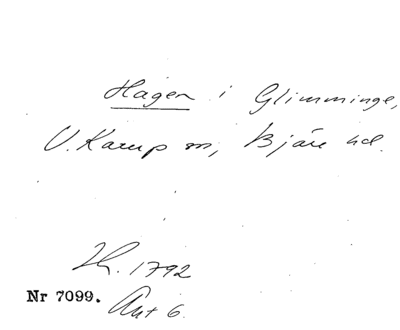 Hagen i Glimminge,
V. Karup sn, Bjäre hd.
Lh. 1792
Nr 7099.
Akt 6.